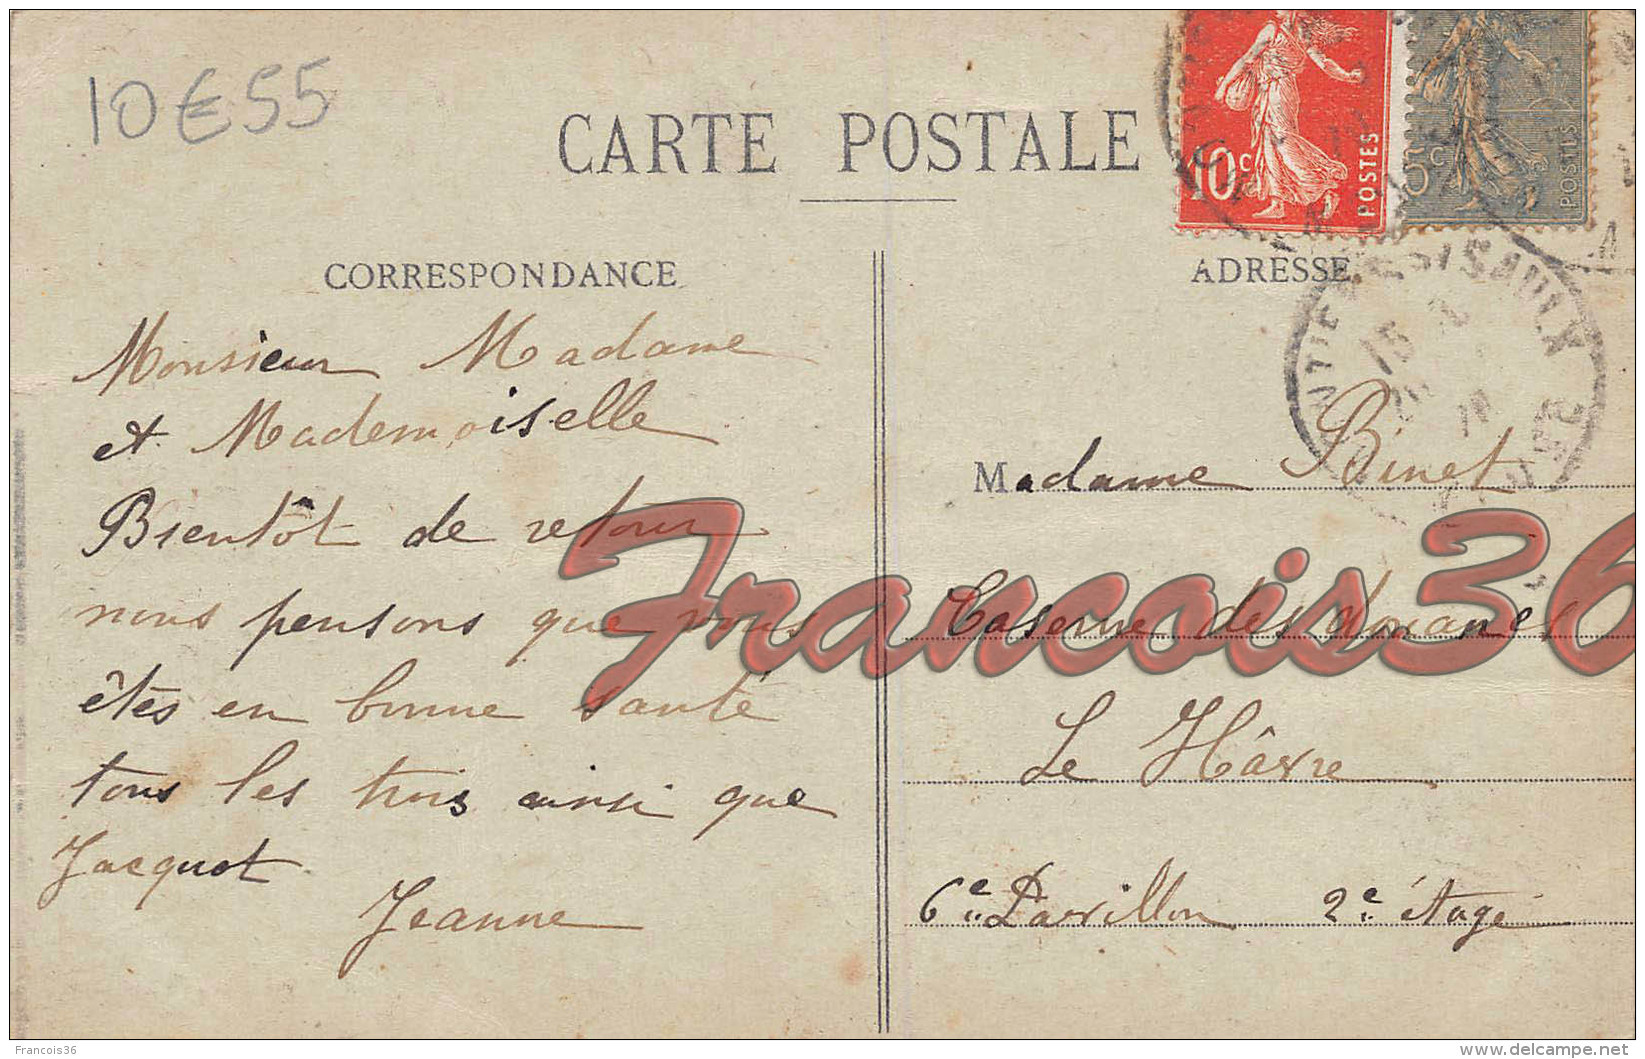 10€55
CARTE POSTALE
10c POSTES
5c POSTES
CORRESPONDANCE
ADRESSE
Monsieur Madame
et Mademoiselle
Bientôt de retour
nous pensons que vous
êtes en bonne santé
tous les trois ainsi que
Jacquot
Jeanne
Madame Binet
Caserne des douanes
Le Hâvre
6e Pavillon 2e étage
Francois36
Francois36
delcampe.net